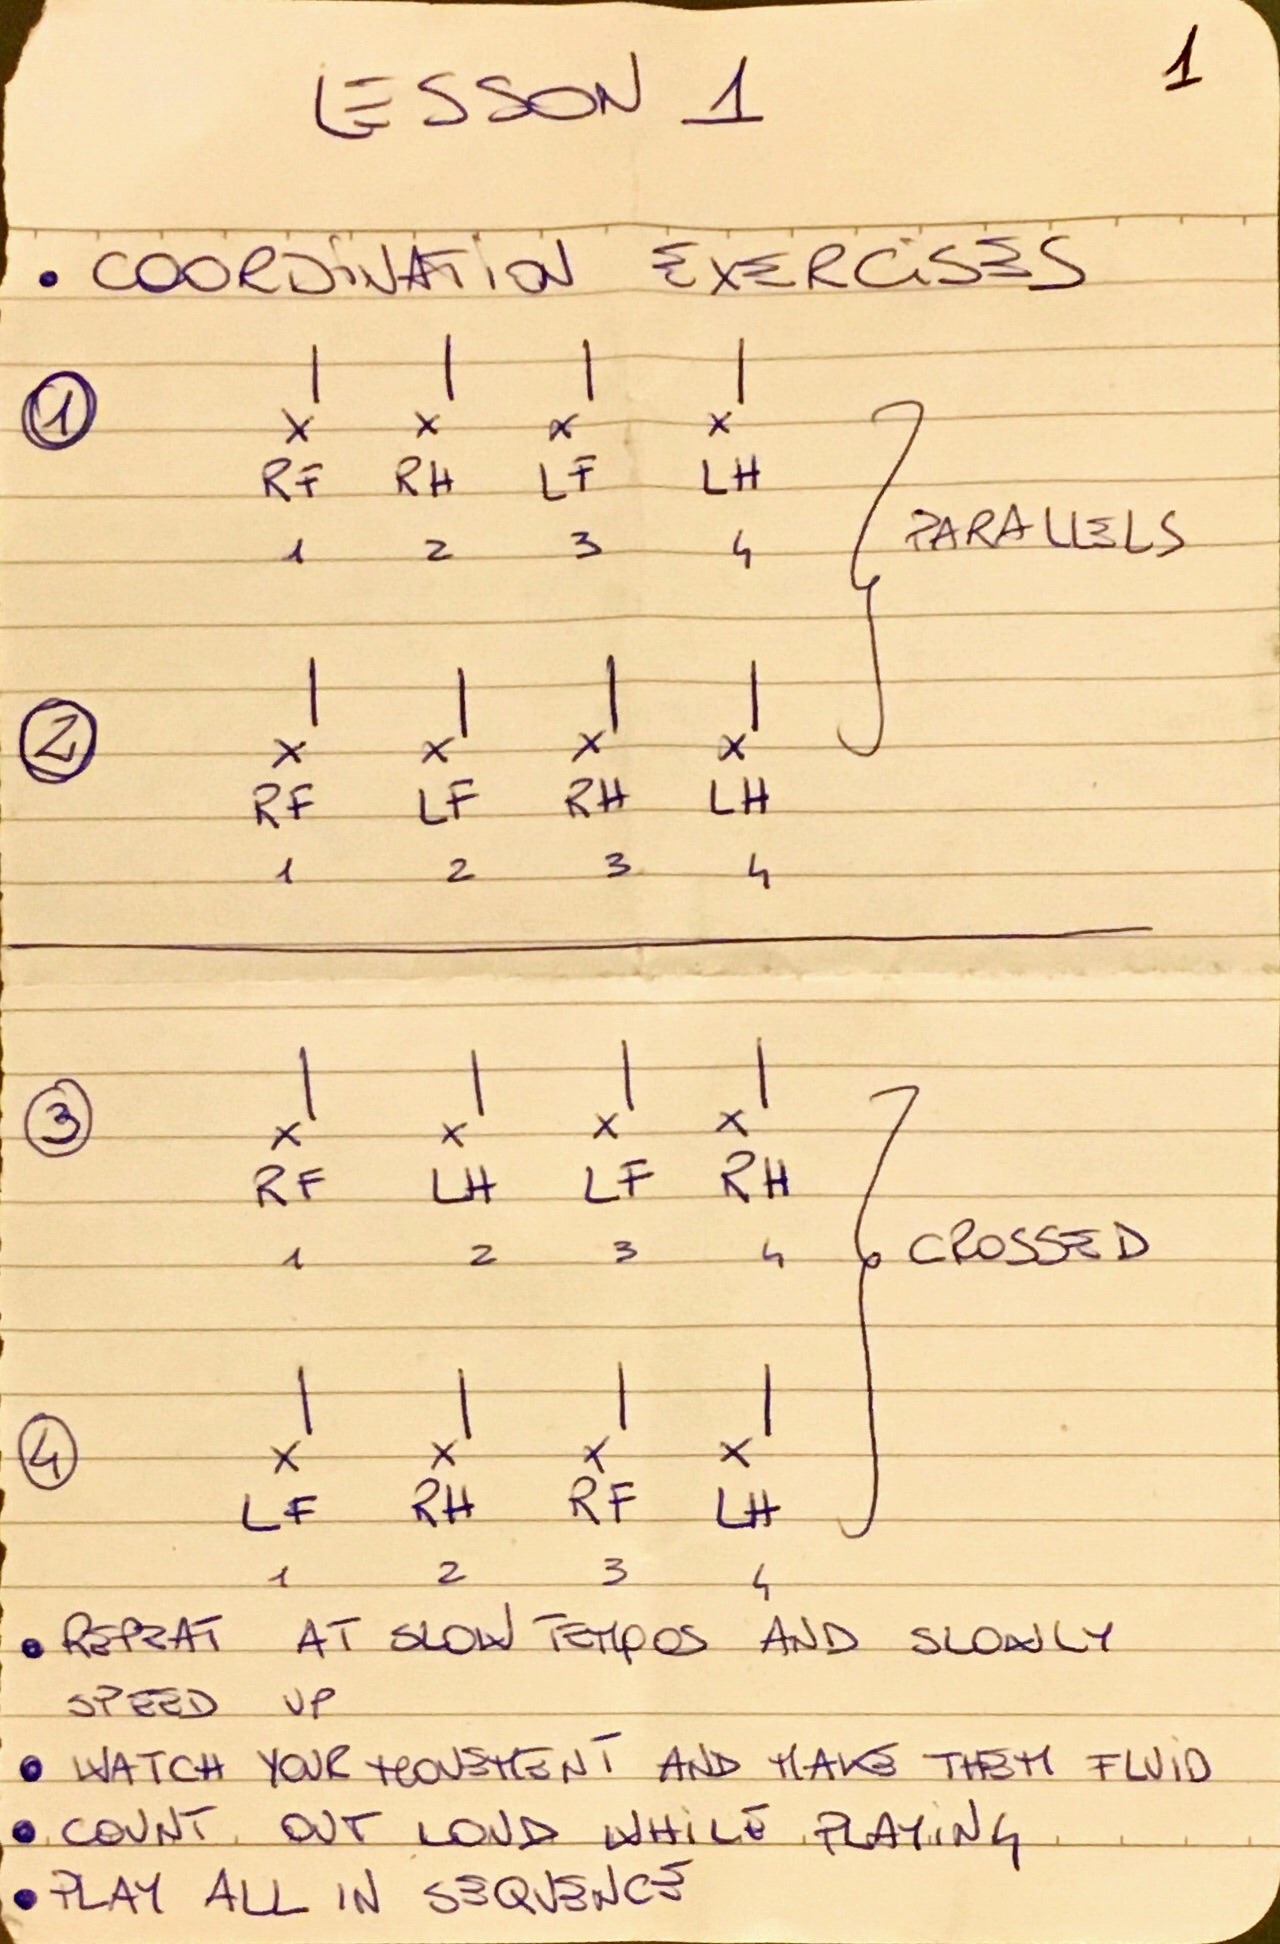 1
LESSON 1
• COORDINATION EXERCISES
1
x x x x
RF RH LF LH
1 2 3 4
PARALLELS
2
x x x x
RF LF RH LH
1 2 3 4
3
x x x x
RF LH LF RH
1 2 3 4
CROSSED
4
x x x x
LF RH RF LH
1 2 3 4
• REPEAT AT SLOW TEMPOS AND SLOWLY
SPEED UP
• WATCH YOUR MOVEMENT AND MAKE THEM FLUID
• COUNT OUT LOUD WHILE PLAYING
• PLAY ALL IN SEQUENCE